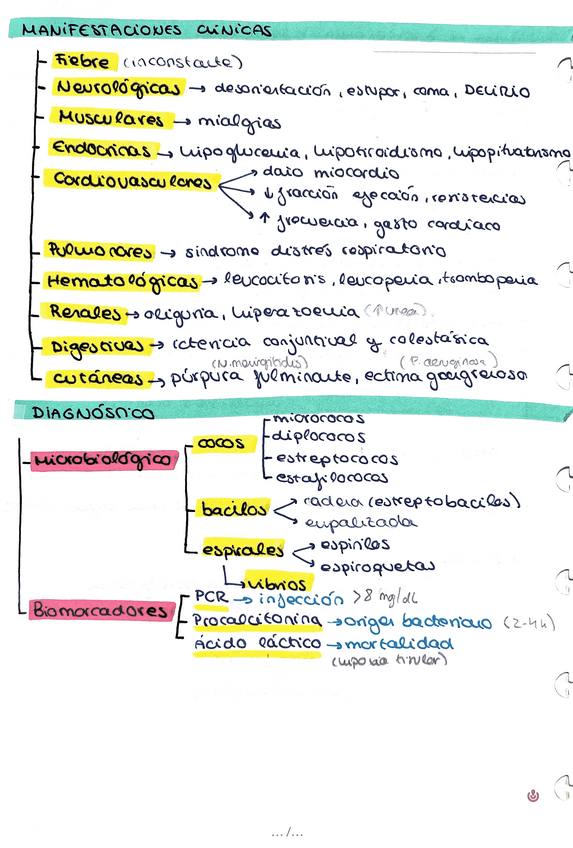 MANIFESTACIONES CLÍNICAS
Fiebre (inconstante)
Neurológicas → desorientación, estupor, coma, DELIRIO
Musculares → mialgias
Endocrinas → hipoglucemia, hipotiroidismo, hipopituitarismo
Cardiovasculares → daño miocardio
↓ fracción eyección, resistencias
↑ frecuencia, gasto cardíaco
Pulmonares → síndrome distrés respiratorio
Hematológicas → leucocitosis, leucopenia, trombopenia
Renales → oliguria, hiperazoemia (↑urea)
Digestivas → ictericia conjuntival y colestásica
(N. meningitidis) (P. aeruginosa)
cutáneas → púrpura fulminante, ectima gangrenoso
DIAGNÓSTICO
Microbiológico
cocos
micrococos
diplococos
estreptococos
estafilococos
bacilos → cadena (estreptobacilos)
empalizada
espirales → espirilos
espiroquetas
vibrios
Biomarcadores
PCR → infección >8 mg/dL
Procalcitonina → origen bacteriano (2-4h)
Ácido láctico → mortalidad
(hipoxia tisular)
.../...